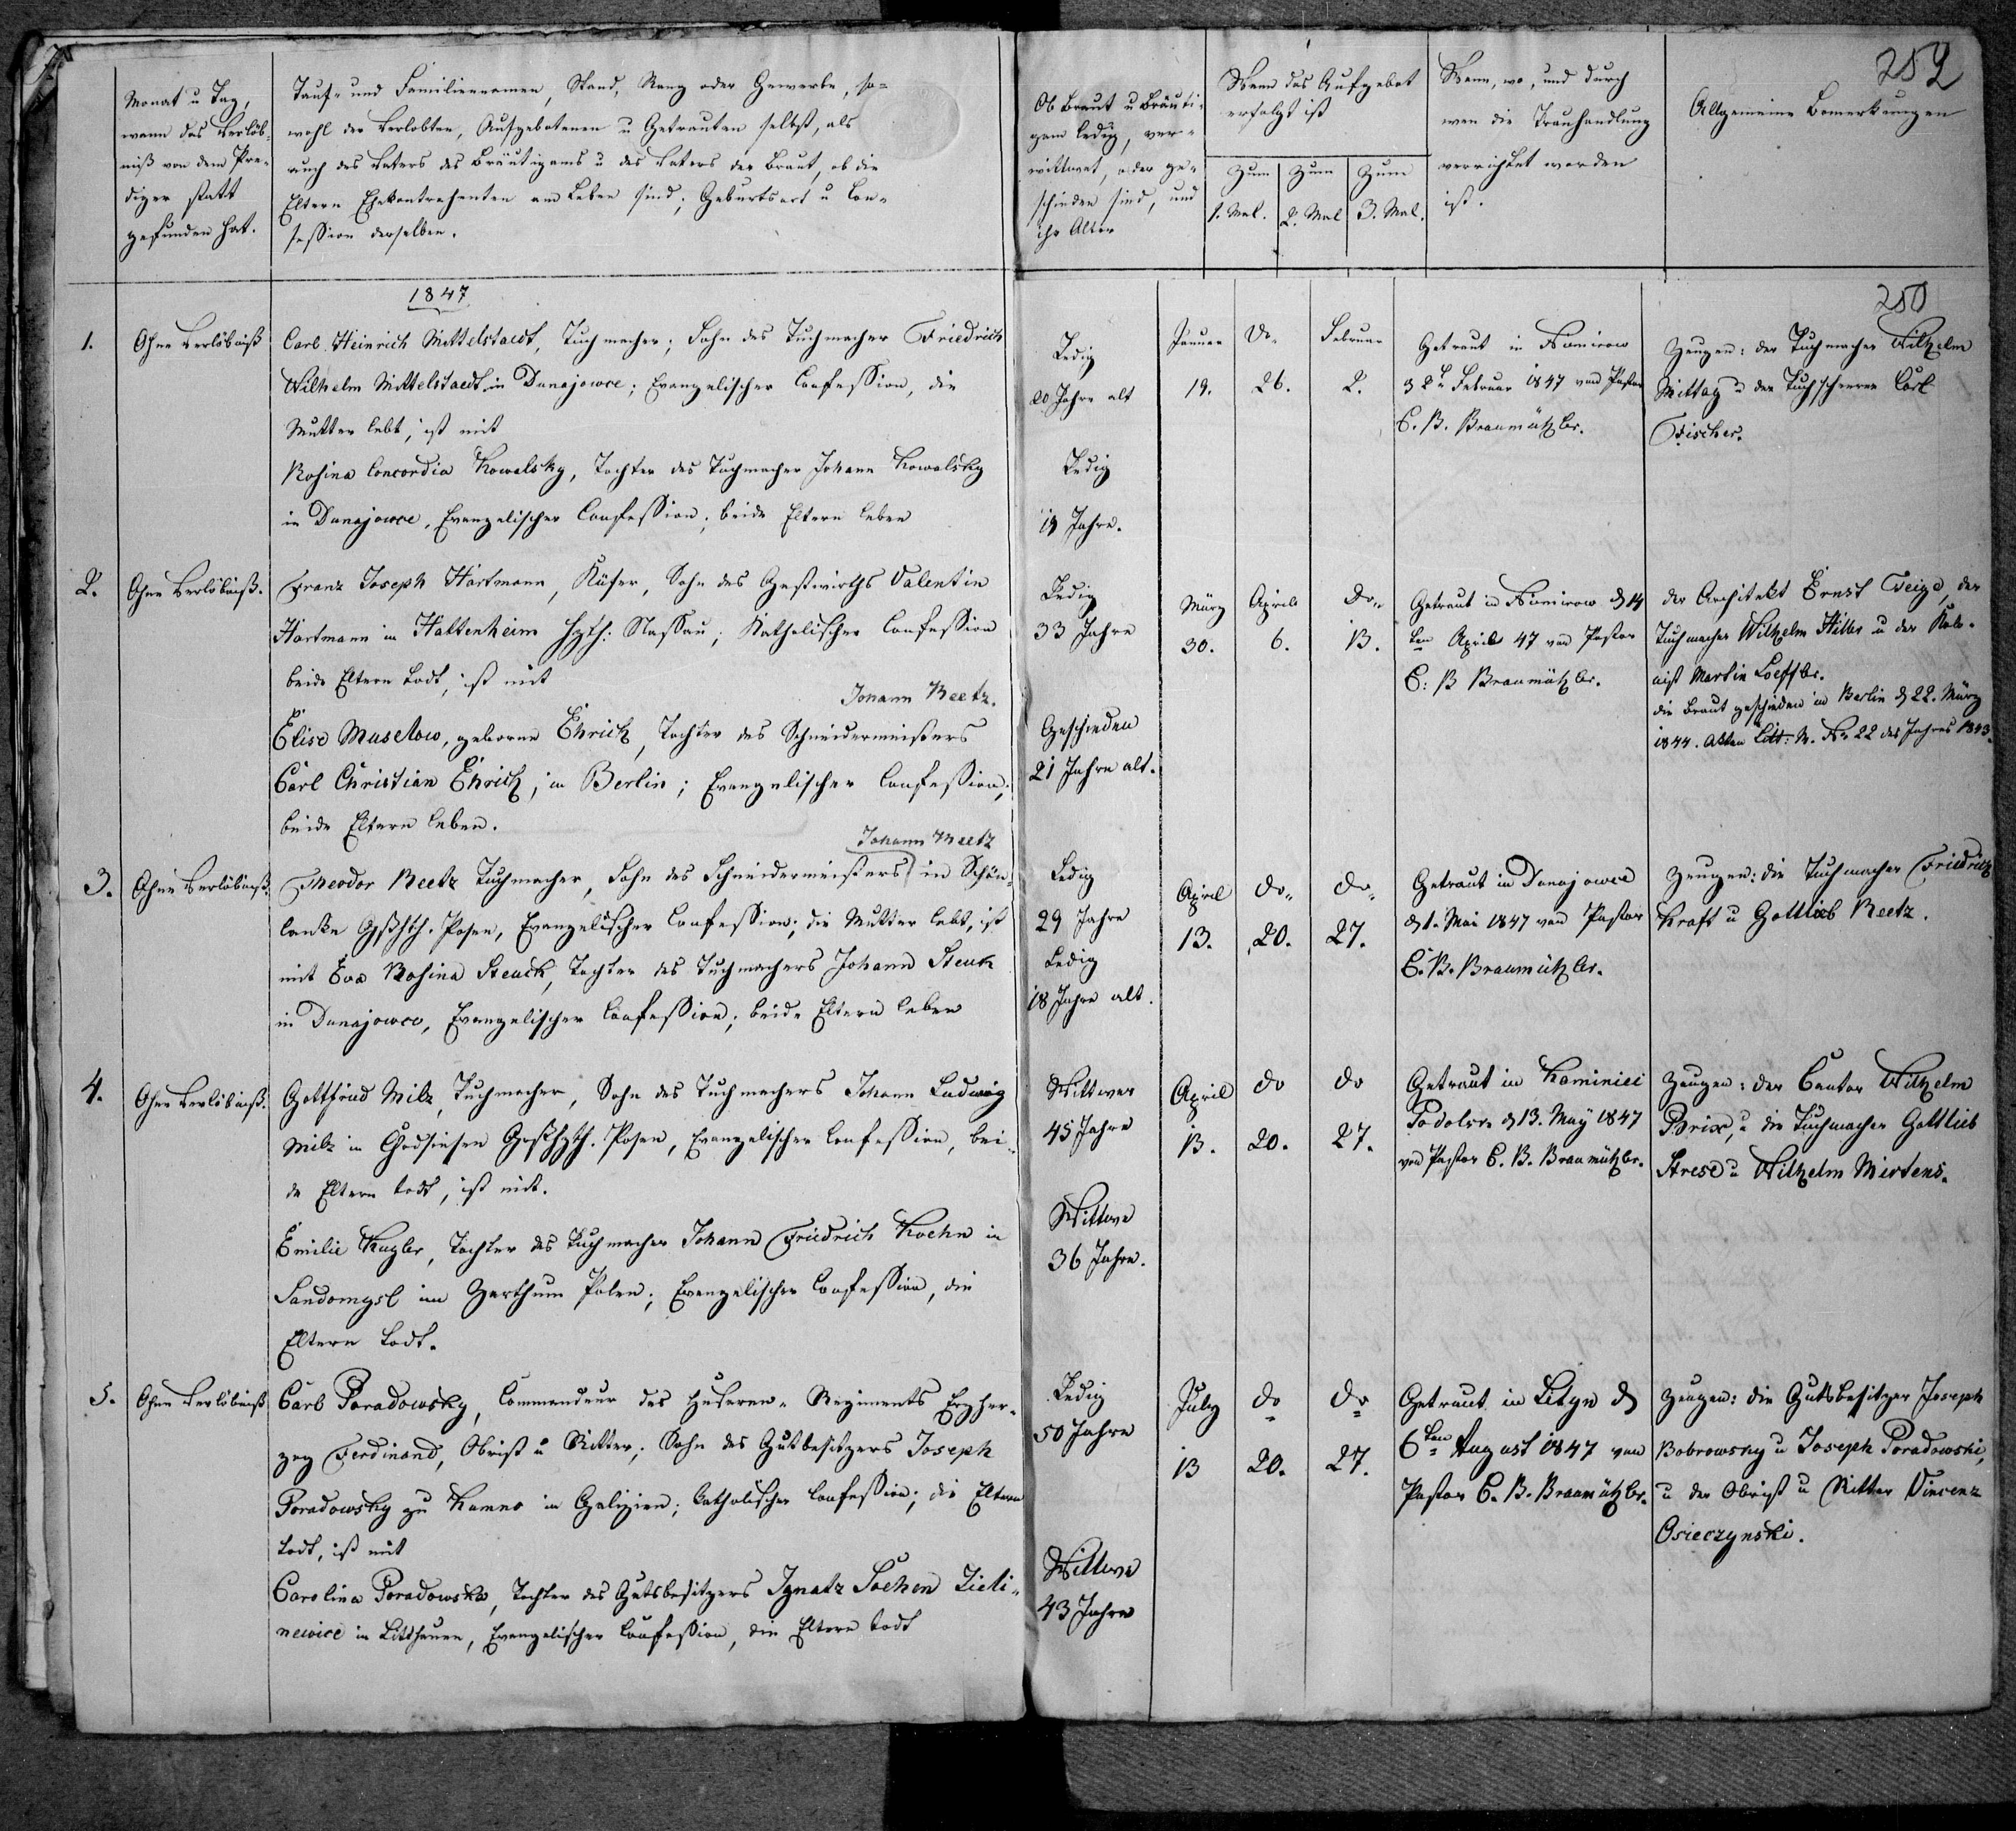 252
Monat u Tag,
wann das Verlöb-
niß von dem Pre-
diger statt
gefunden hat.
Tauf- und Familiennamen, Stand, Rang oder Gewerbe, so-
wohl der Verlobten, Aufgebotenen u Getrauten selbst, als
auch des Vaters des Bräutigams u des Vaters der Braut, ob die
Eltern Ehekontrahenten am Leben sind; Geburtsort u Con-
fession derselben.
Ob Braut u Bräuti-
gam ledig, ver-
wittwet, oder ge-
schieden sind, und
ihr Alter
Wann das Aufgebot
erfolgt ist
zum 1. Mal.
zum 2. Mal
zum 3. Mal.
Wann, wo, und durch
wen die Trauhandlung
verrichtet worden
ist.
Allgemeine Bemerkungen
1847
250
1.
Ohne Verlöbniß
Carl Heinrich Mittelstaedt, Tuchmacher; Sohn des Tuchmacher Friedrich
Wilhelm Mittelstaedt in Dunajowce; Evangelischer Confession, die
Mutter lebt, ist mit
Rosina Concordia Kowalsky, Tochter des Tuchmacher Johann Kowalsky
in Dunajowce, Evangelischer Confession; beide Eltern leben
Ledig
20 Jahre alt
Ledig
19 Jahre.
Januar 19.
Do. 26.
Februar 2.
Getraut in Niemirow
d 2t Februar 1847 von Pastor
C. B. Braumützler.
Zeugen: der Tuchmacher Wilhelm
Mittag u der Tuchscheerer Carl
Fischer.
2.
Ohne Verlöbniß.
Franz Joseph Hartmann, Küfer, Sohn des Gastwirths Valentin
Hartmann in Hattenheim Hzth: Nassau; Katholischer Confession
beide Eltern todt, ist mit
Johann Reetz.
Elise Muselow, geborne Ehrich, Tochter des Schneidermeisters
Carl Christian Ehrich, in Berlin; Evangelischer Confession;
beide Eltern leben.
Ledig
33 Jahre
Geschieden
21 Jahre alt.
März 30.
April 6.
Do. 13.
Getraut in Niemirow d 14
ten April 47 von Pastor
C: B Braumützler.
der Architekt Ernst Feige, der
Tuchmacher Wilhelm Hiller u der Kolo-
nist Martin Loeffler.
die Braut geschieden in Berlin d 22. März
1844. Akten Litt: M. No 22 des Jahres 1843.
3.
Ohne Verlöbniß.
Johann Reetz
Theodor Reetz Tuchmacher, Sohn des Schneidermeisters in Schön-
lanke Gßhth. Posen, Evangelischer Confession; die Mutter lebt, ist
mit Eva Rosina Steuck, Tochter des Tuchmachers Johann Steuk
in Dunajowce, Evangelischer Confession; beide Eltern leben
Ledig
29 Jahre
Ledig
18 Jahre alt.
April 13.
do 20.
do 27.
Getraut in Dunajowce
d 1. Mai 1847 von Pastor
C. B. Braumützler.
Zeugen: die Tuchmacher Friedrich
Kraft u Gottlieb Reetz.
4.
Ohne Verlöbniß.
Gottfried Milz, Tuchmacher, Sohn des Tuchmachers Johann Ludwig
Milz in Chodsiesen Großhzth. Posen, Evangelischer Confession, bei-
de Eltern todt, ist mit.
Emilie Kugler, Tochter des Tuchmacher Johann Friedrich Koehn in
Sandomysl im Zarthum Polen; Evangelischer Confession, die
Eltern todt.
Wittwer
45 Jahre
Wittwe
36 Jahre.
April 13.
do 20.
do 27.
Getraut in Kaminiec
Podolsk d 13. May 1847
von Pastor C. B. Braumützler.
Zeugen: der Cantor Wilhelm
Brix, u die Tuchmacher Gottlieb
Strese u Wilhelm Mirtens.
5.
Ohne Verlöbniß
Carl Poradowsky, Commandeur des Husaren-Regiments Erzher-
zog Ferdinand, Obrist u Ritter; Sohn des Gutbesitzers Joseph
Poradowsky zu Kamno in Galizien; Catholischer Confession; die Eltern
todt, ist mit
Carolina Poradowska, Tochter des Gutsbesitzers Ignatz Sochen Zieli-
newice in Litthauen, Evangelischer Confession, die Eltern todt
Ledig
50 Jahre
Wittwe
43 Jahre
July 13
do 20.
do 27.
Getraut in Lityn d
6ten August 1847 von
Pastor C. B. Braumützler.
Zeugen: die Gutsbesitzer Joseph
Bobrowsky u Joseph Poradowski,
u der Obrist u Ritter Vincenz
Osieczynski.